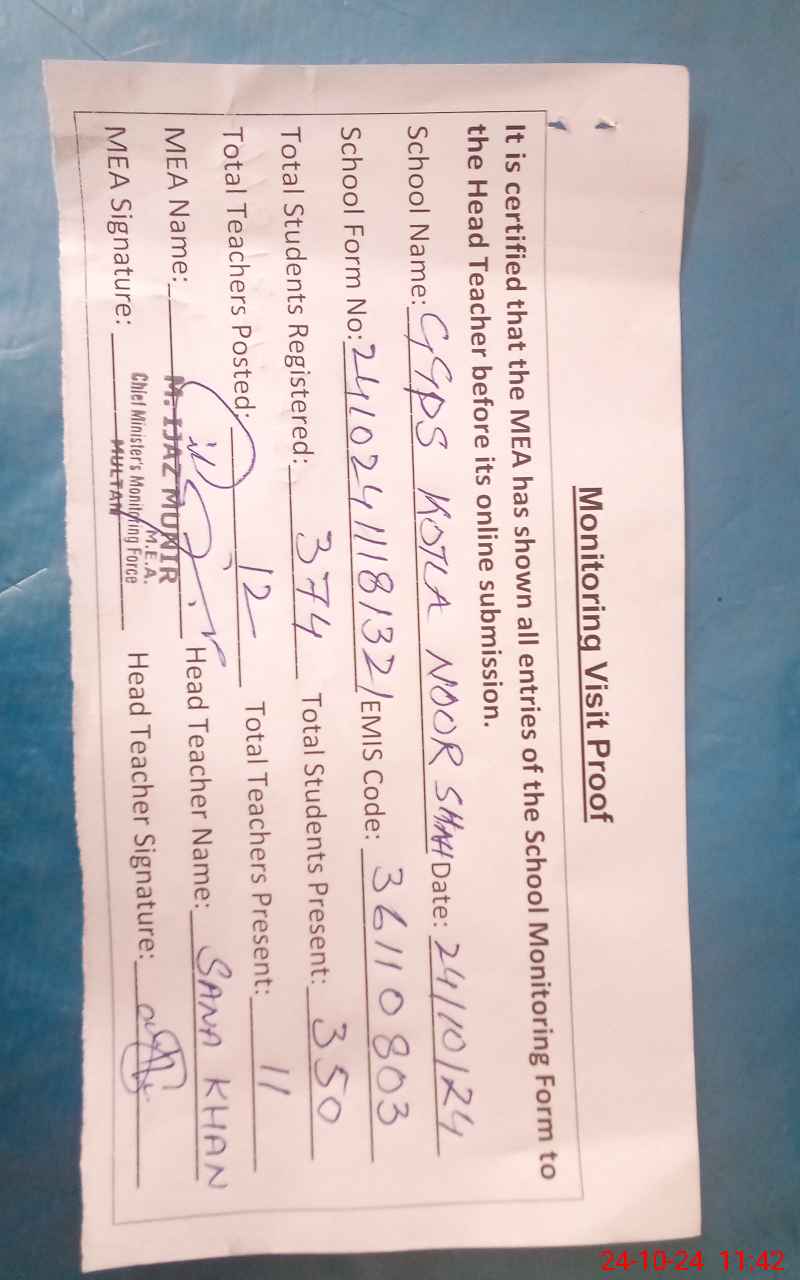 Monitoring Visit Proof
It is certified that the MEA has shown all entries of the School Monitoring Form to
the Head Teacher before its online submission.
School Name: GGPS KOTLA NOOR SHAH Date: 24/10/24
School Form No: 24102411181321 EMIS Code: 36110803
Total Students Registered: 374 Total Students Present: 350
Total Teachers Posted: 12 Total Teachers Present: 11
MEA Name: M. IJAZ MUNIR Head Teacher Name: SANA KHAN
M.E.A.
Chief Minister's Monitoring Force
MULTAN
MEA Signature: Head Teacher Signature:
24-10-24 11:42